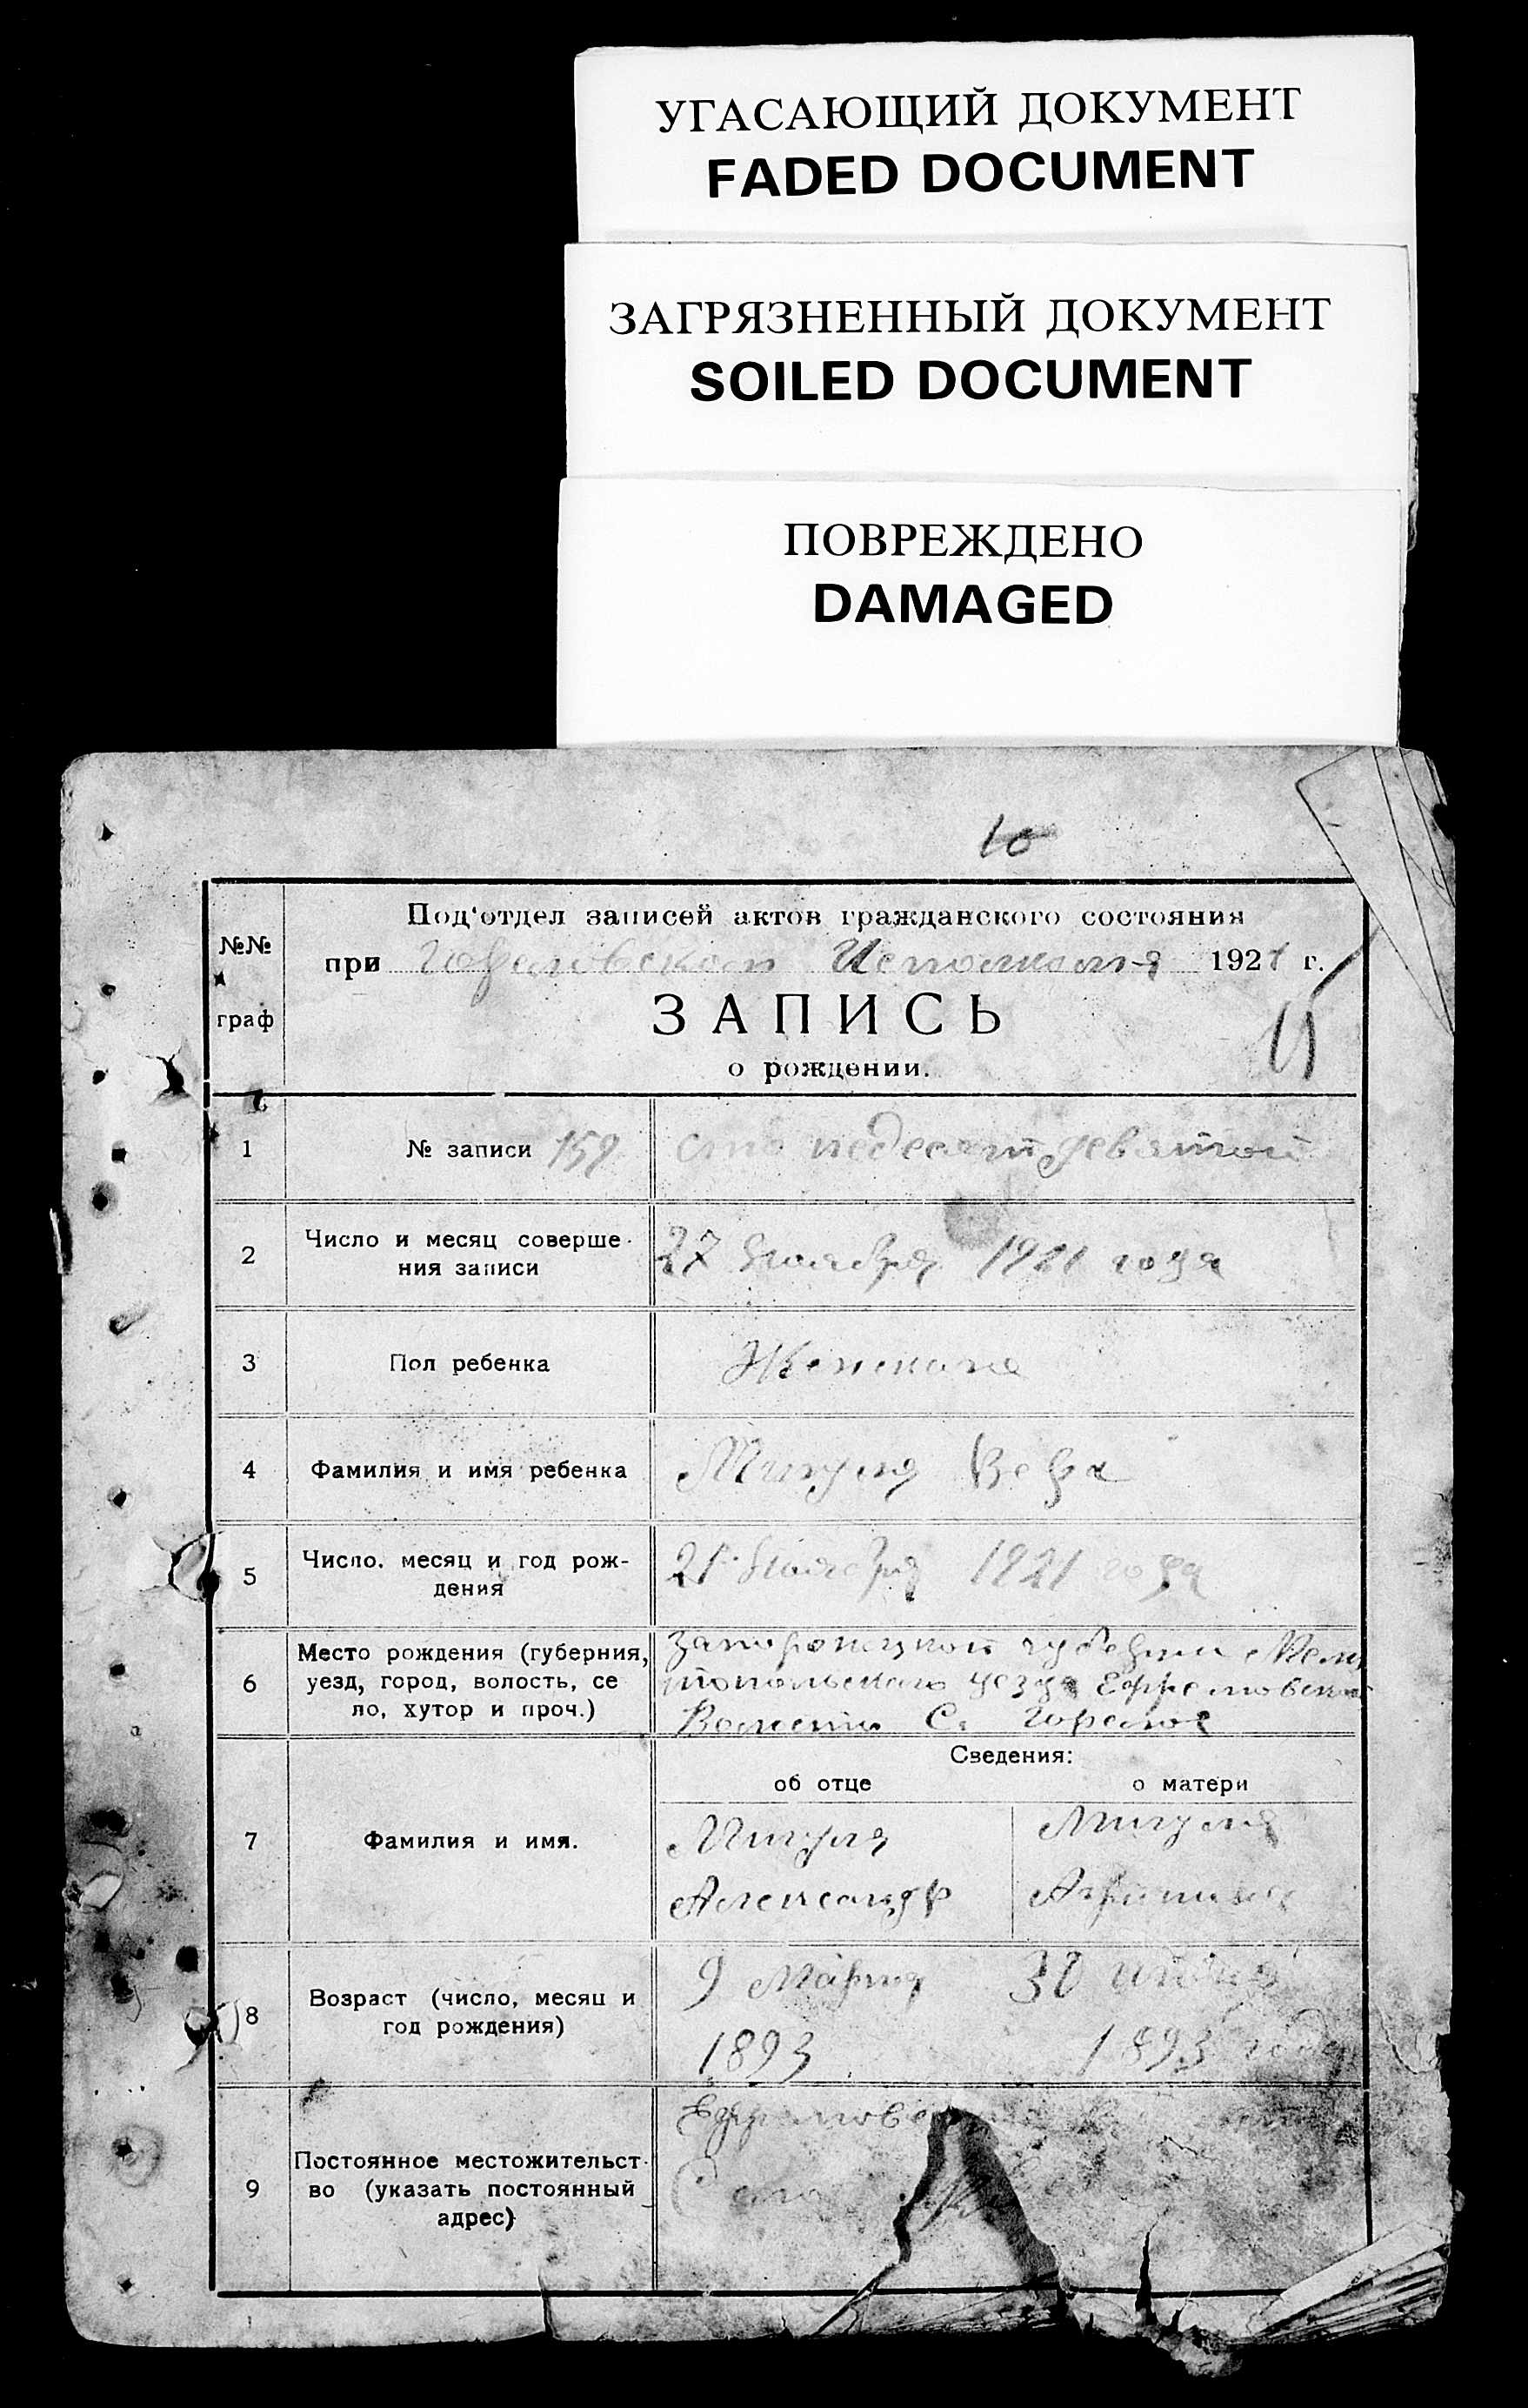 УГАСАЮЩИЙ ДОКУМЕНТ
FADED DOCUMENT
ЗАГРЯЗНЕННЫЙ ДОКУМЕНТ
SOILED DOCUMENT
ПОВРЕЖДЕНО
DAMAGED
10
№№ граф
Под'отдел записей актов гражданского состояния
при Гореловском 1921 г.
ЗАПИСЬ
15
о рождении.
1 № записи 159 сто педесят девятой
2 Число и месяц соверше-
ния записи
27 Ноября 1921 года
3 Пол ребенка Женскаго
4 Фамилия и имя ребенка Мигуля Вера
5 Число, месяц и год рож-
дения
21 Ноября 1921 года
6 Место рождения (губерния,
уезд, город, волость, се
ло, хутор и проч.)
Запорожской губернии Мели
топольскаго уезда Ефремовской
Волости С. Горелое
Сведения:
об отце о матери
7 Фамилия и имя.
Мигуля Мигуля
Александр
8 Возраст (число, месяц и
год рождения)
9 Марта 30
1893 1893 года
9 Постоянное местожительст-
во (указать постоянный
адрес)
Село